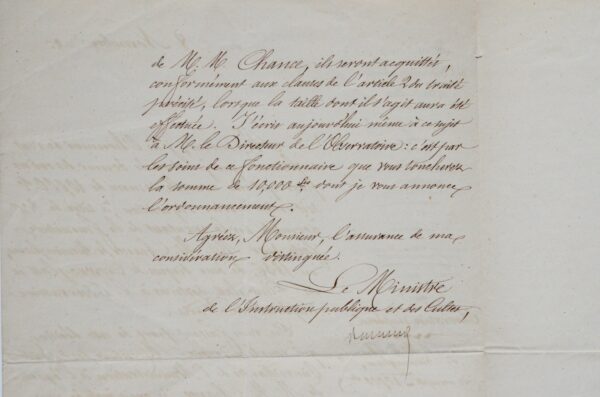 de M. M. Chance, ils seront acquittés,
conformément aux clauses de l'article 2 du traité
précité, lorsque la taille dont il s'agit aura été
effectuée. J'écris aujourd'hui même à ce sujet
à M. le Directeur de l'Observatoire : c'est par
les soins de ce fonctionnaire que vous toucherez
la somme de 10,000 frs dont je vous annonce
l'ordonnancement.
Agréez, Monsieur, l'assurance de ma
considération distinguée.
Le Ministre
de l'Instruction publique et des Cultes,